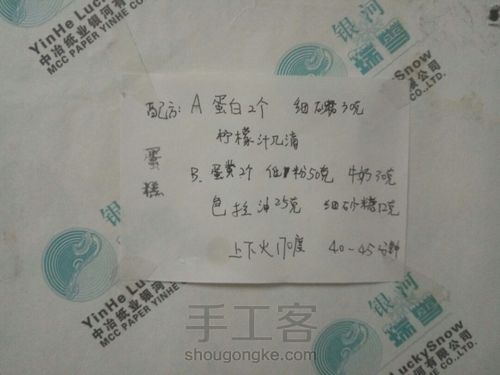 YinHe LuckySnow
中冶纸业银河有限公司
MCC PAPER YINHE CO.,LTD.
银河瑞雪
配方: A 蛋白2个 细砂糖30克
柠檬汁几滴
蛋糕
B、蛋黄2个 低粉50克 牛奶30克
色拉油25克 细砂糖12克
上下火170度 40-45分钟
银河
YinHe Lu
中冶纸业银河
MCC PAPER YINHE
手工客
shougongke.com
银河瑞
LuckySnow
有限公司
E CO.,LTD.